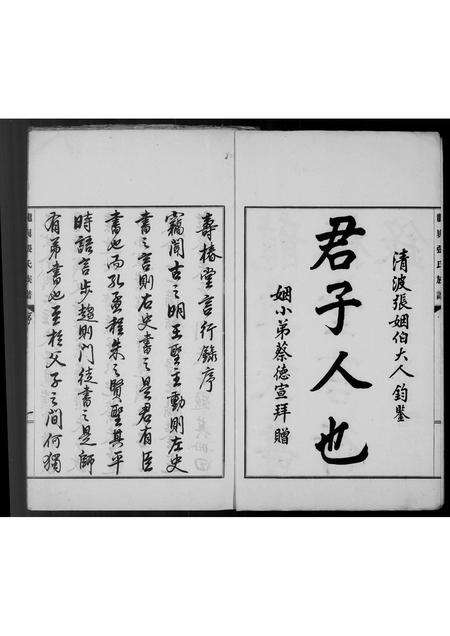 清波張姻伯大人鈞鑒
君子人也
姻小弟蔡德宣拜贈
壽椿堂言行錄序
竊聞古之明王聖主動則左史
書之言則右史書之是君有臣
書也而孔孟程朱之賢聖其平
時語言步趨則門徒書之是師
有弟書也至於父子之間何獨